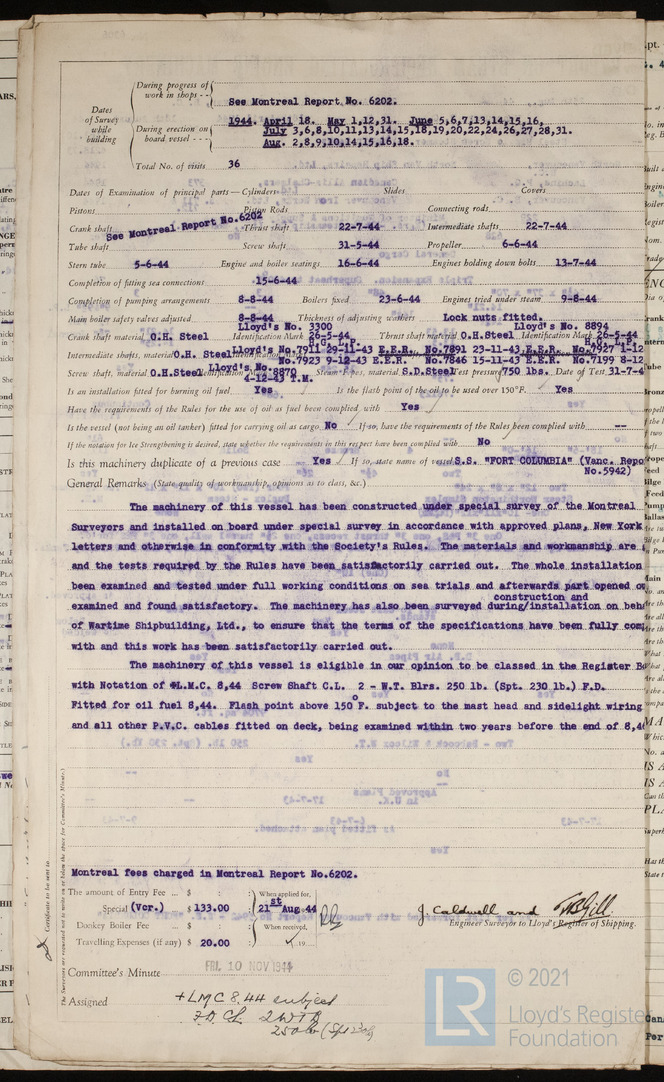 During progress of
work in shops - -
See Montreal Report No. 6202.
Dates
of Survey
while
building
During erection on
board vessel - - -
1944. April 18. May 1,12,31. June 5,6,7,13,14,15,16,
July 3,6,8,10,11,13,14,15,18,19,20,22,24,26,27,28,31.
Aug. 2,8,9,10,14,15,16,18.
Total No. of visits 36
Dates of Examination of principal parts—Cylinders Slides Covers
Pistons Piston Rods Connecting rods
Crank shaft See Montreal Report No.6202 Thrust shaft 22-7-44 Intermediate shafts 22-7-44
Tube shaft Screw shaft 31-5-44 Propeller 6-6-44
Stern tube 5-6-44 Engine and boiler seatings 16-6-44 Engines holding down bolts 13-7-44
Completion of fitting sea connections 15-6-44
Completion of pumping arrangements 8-8-44 Boilers fixed 23-6-44 Engines tried under steam 9-8-44
Main boiler safety valves adjusted 8-8-44 Thickness of adjusting washers Lock nuts fitted.
Lloyd's No. 3300 Lloyd's No. 8894
Crank shaft material O.H. Steel Identification Mark 26-5-44 Thrust shaft material O.H.Steel Identification Mark 26-5-44
Intermediate shafts, material O.H. Steel Lloyd's No.7911 29-11-43 E.E.R. No.7891 23-11-43 E.E.R. No.7927 1-12
No.7923 9-12-43 E.E.R. No.7846 15-11-43 E.E.R. No.7199 8-12
Lloyd's No.
Screw shaft, material O.H.Steel Identification Mark 8870 Steam Pipes, material S.D.Steel Test pressure 750 lbs. Date of Test 31-7-4
4-12-43 T.M.
Is an installation fitted for burning oil fuel Yes Is the flash point of the oil to be used over 150°F. Yes
Have the requirements of the Rules for the use of oil as fuel been complied with Yes
Is the vessel (not being an oil tanker) fitted for carrying oil as cargo No If so, have the requirements of the Rules been complied with --
If the notation for Ice Strengthening is desired, state whether the requirements in this respect have been complied with No
Is this machinery duplicate of a previous case Yes If so, state name of vessel S.S. "FORT COLUMBIA" (Vanc. Repo
No.5942)
General Remarks (State quality of workmanship, opinions as to class, &c.)
The machinery of this vessel has been constructed under special survey of the Montreal
Surveyors and installed on board under special survey in accordance with approved plans, New York
letters and otherwise in conformity with the Society's Rules. The materials and workmanship are
and the tests required by the Rules have been satisfactorily carried out. The whole installation
been examined and tested under full working conditions on sea trials and afterwards part opened
construction and
examined and found satisfactory. The machinery has also been surveyed during/installation on beh
of Wartime Shipbuilding, Ltd., to ensure that the terms of the specifications have been fully com
with and this work has been satisfactorily carried out.
The machinery of this vessel is eligible in our opinion to be classed in the Register
with Notation of +L.M.C. 8,44 Screw Shaft C.L. 2 - W.T. Blrs. 250 lb. (Spt. 230 lb.) F.D.
Fitted for oil fuel 8,44. Flash point above 150°F. subject to the mast head and sidelight wiring
and all other P.V.C. cables fitted on deck, being examined within two years before the end of 8,4
Montreal fees charged in Montreal Report No.6202.
The amount of Entry Fee ... $ : : When applied for,
Special (Ver.) $ 133.00 : 21st Aug 44
Donkey Boiler Fee $ : : When received,
Travelling Expenses (if any) $ 20.00 : 19
J. Caldwell and
Engineer Surveyor to Lloyd's Register of Shipping.
Committee's Minute FRI. 10 NOV 1944
Assigned +LMC 8.44 subject
F.D. CL 2WTB
250 lb (Spt 230)
Certificate to be sent to
The Surveyors are requested not to write on or below the space for Committee's Minute.
© 2021
LR
Lloyd's Register
Foundation